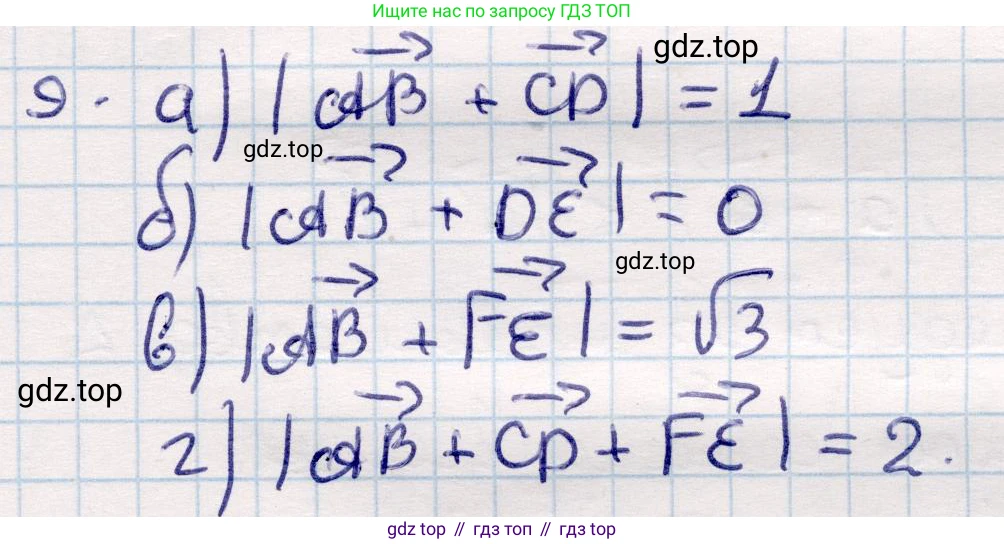 Ищите нас по запросу ГДЗ ТОП
gdz.top
9. а) |AB + CD| = 1
gdz.top
б) |AB + DE| = 0
gdz.top
в) |AB + FE| = √3
gdz.top
г) |AB + CD + FE| = 2.
gdz top // гдз топ // gdz top